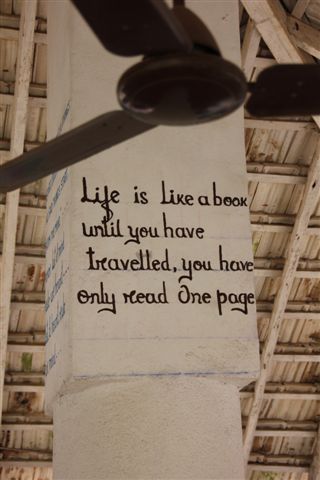 Life is like a book
until you have
travelled, you have
only read One page